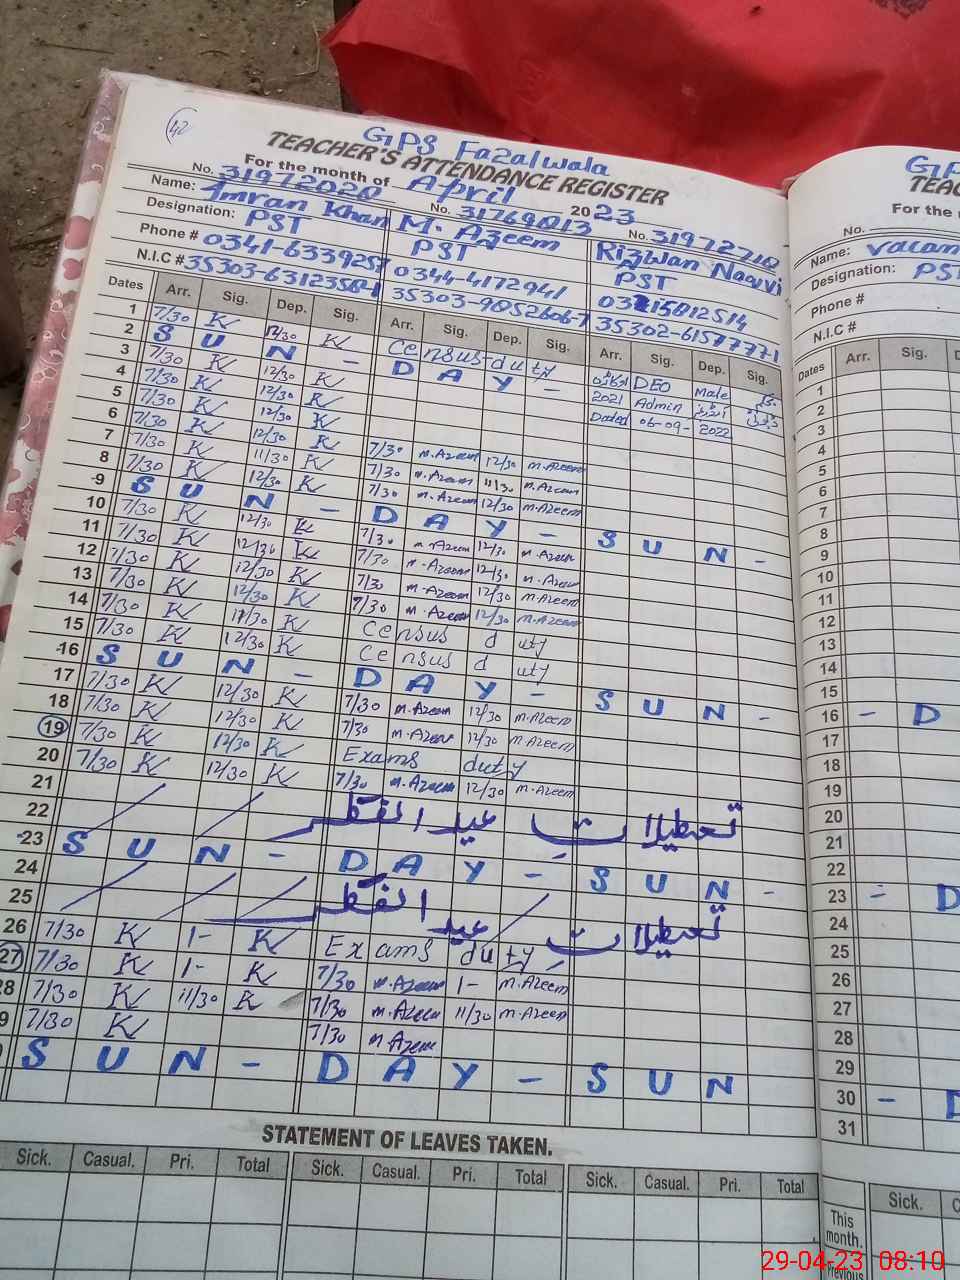 42
GPS Fazalwala
TEACHER'S ATTENDANCE REGISTER
For the month of April 2023
No. 31972020 No. 31769013 No. 31972710
Name: Imran Khan M. Azeem Rizwan Naqvi
Designation: PST PST PST
Phone # 0341-6339257 0344-4172941
N.I.C # 35303-6312358-1 35303-9052606-7 35302-6157777-1
Dates Arr. Sig. Dep. Sig. Arr. Sig. Dep. Sig. Arr. Sig. Dep. Sig.
1 7/30 K 12/30 K Census duty
2 S U N - D A Y -
3 7/30 K 12/30 K DEO Male
4 7/30 K 12/30 K 2021 Admin
5 7/30 K 12/30 K Dated 06-09-2022
6 7/30 K 12/30 K 7/30 M.Azeem 12/30 M.Azeem
7 7/30 K 11/30 K 7/30 M.Azeem 11/30 M.Azeem
8 7/30 K 12/30 K 7/30 M.Azeem 12/30 M.Azeem
9 S U N - D A Y - S U N -
10 7/30 K 12/30 K 7/30 M.Azeem 12/30 M.Azeem
11 7/30 K 12/30 K 7/30 M.Azeem 12/30 M.Azeem
12 7/30 K 12/30 K 7/30 M.Azeem 12/30 M.Azeem
13 7/30 K 12/30 K 7/30 M.Azeem 12/30 M.Azeem
14 7/30 K 11/30 K Census duty
15 7/30 K 12/30 K Census duty
16 S U N - D A Y - S U N -
17 7/30 K 12/30 K 7/30 M.Azeem 12/30 M.Azeem
18 7/30 K 12/30 K 7/30 M.Azeem 12/30 M.Azeem
19 7/30 K 12/30 K Exams duty
20 7/30 K 12/30 K 7/30 M.Azeem 12/30 M.Azeem
21
22 تعطیلات عید الفطر
23 S U N - D A Y - S U N -
24
25 تعطیلات عید الفطر
26 7/30 K 1- K Exams duty
27 7/30 K 1- K 7/30 M.Azeem 1- M.Azeem
28 7/30 K 11/30 K 7/30 M.Azeem 11/30 M.Azeem
9 7/30 K 7/30 M.Azeem
S U N - D A Y - S U N
STATEMENT OF LEAVES TAKEN.
Sick. Casual. Pri. Total Sick. Casual. Pri. Total Sick. Casual. Pri. Total
GP
TEAC
For the
No.
Name:
Designation: PS
Phone #
N.I.C #
Dates Arr. Sig. D
1
2
3
4
5
6
7
8
9
10
11
12
13
14
15
16 - D
17
18
19
20
21
22
23 - D
24
25
26
27
28
29
30 - D
31
Sick. C
This month.
Previous
29-04-23 08:10